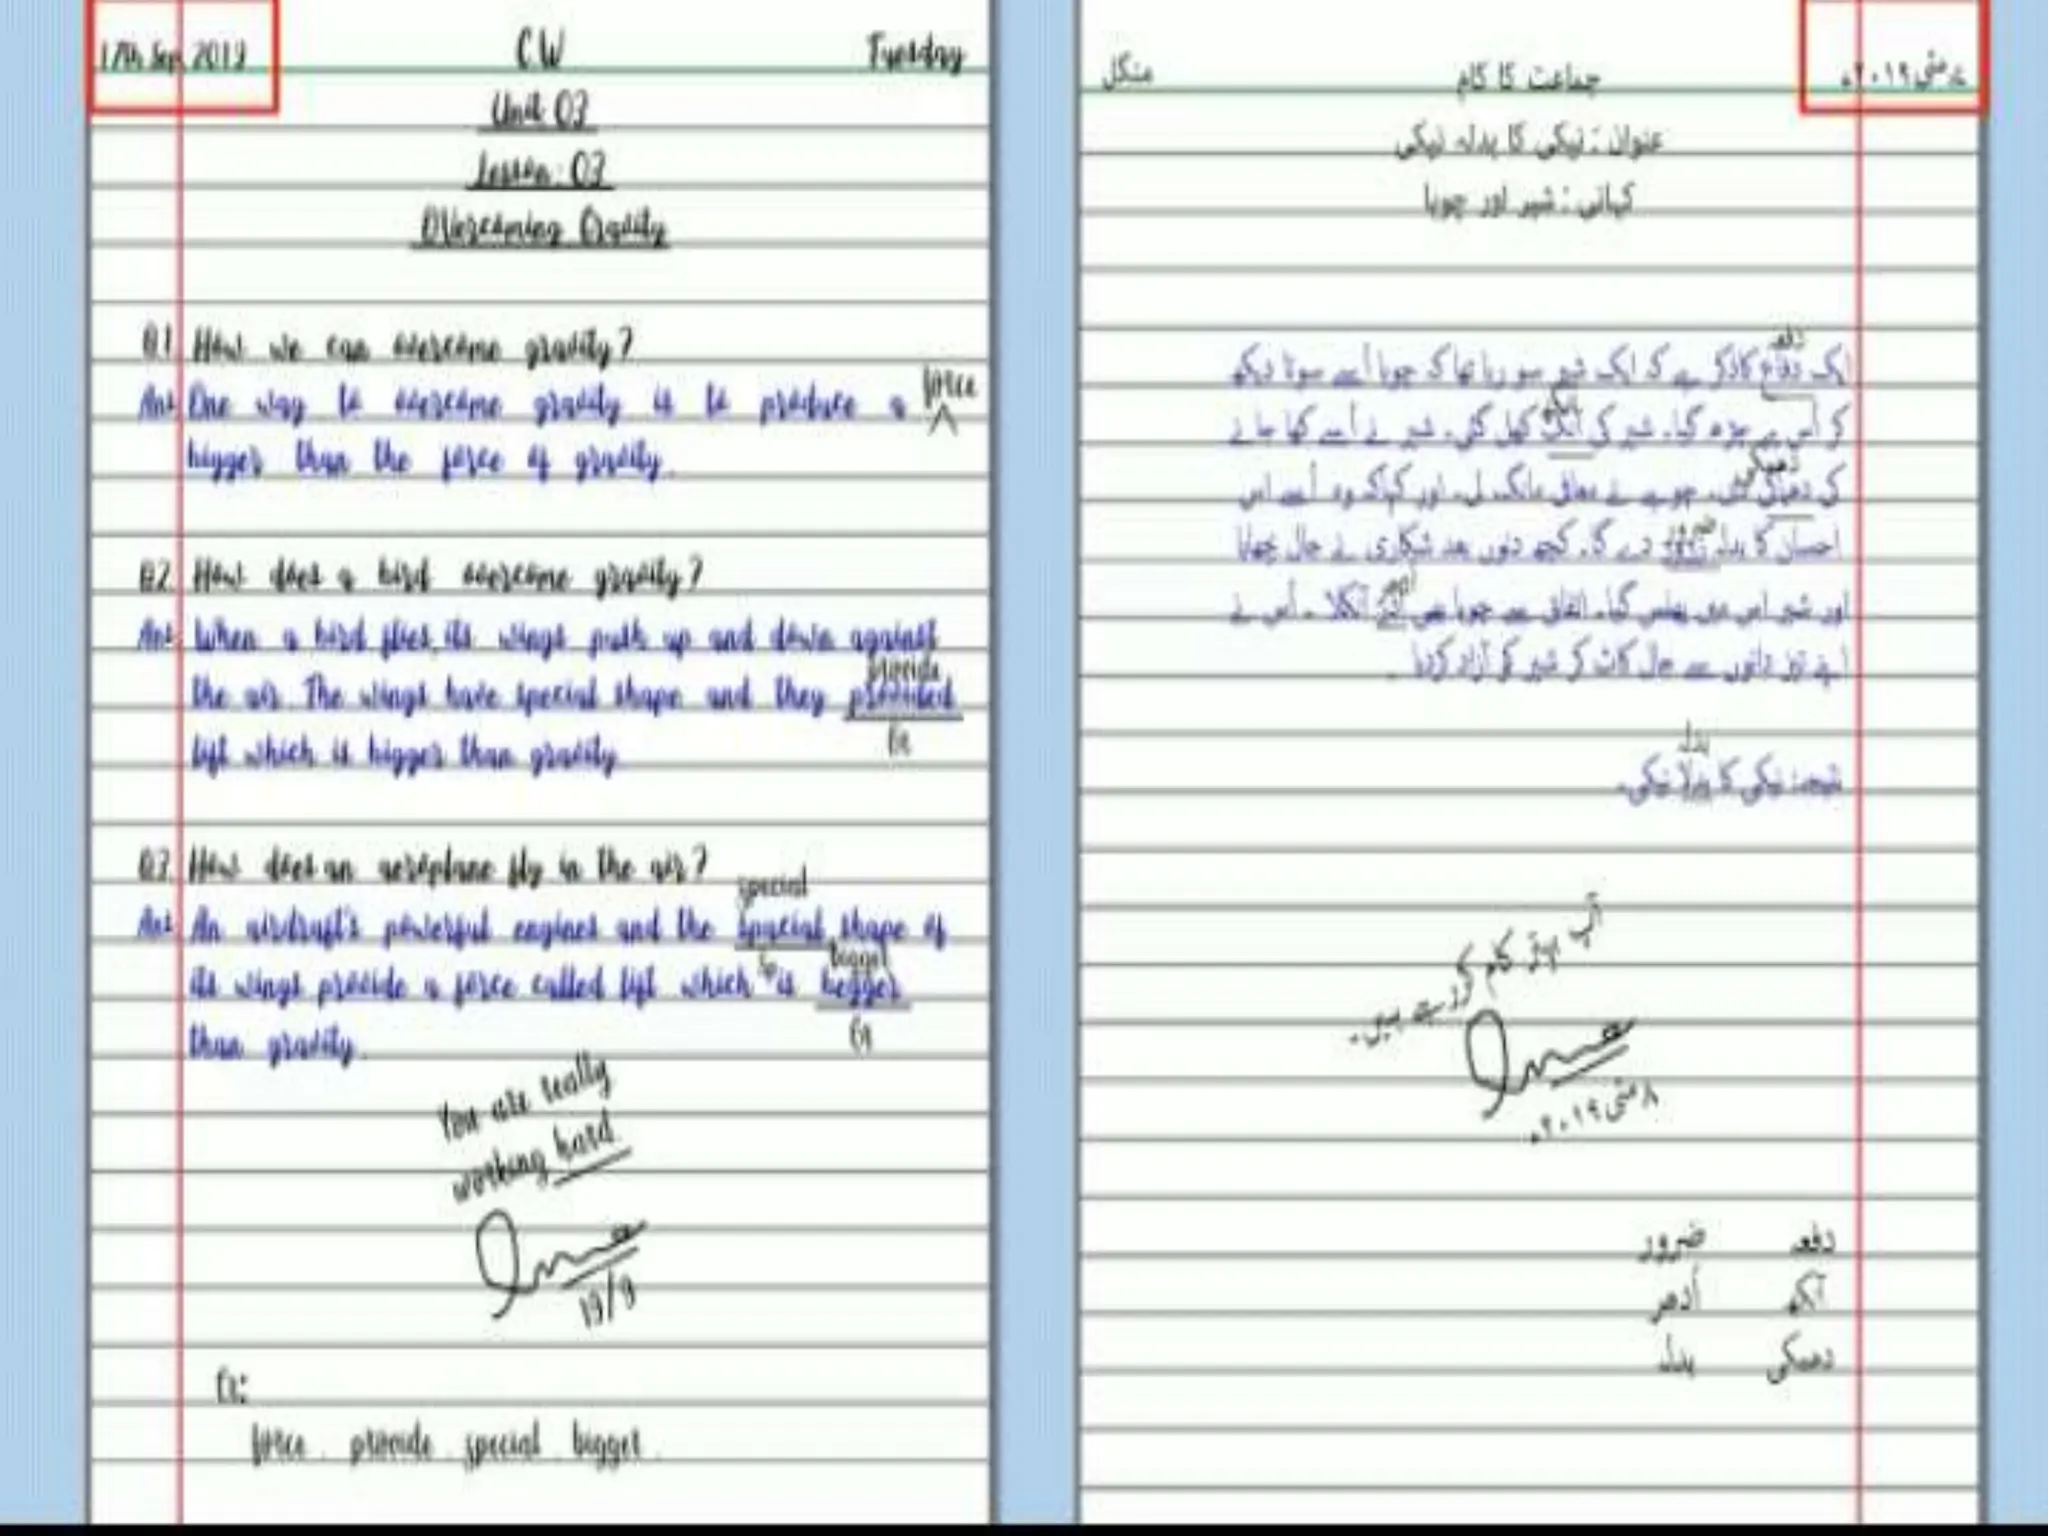 17th Sep, 2019 CW Tuesday
Unit 03
Lesson: 03
Overcoming Gravity
Q1. How we can overcome gravity?
Ans. One way to overcome gravity is to produce a force
bigger than the force of gravity.
Q2. How does a bird overcome gravity?
Ans. When a bird flies, its wings push up and down against
provide
the air. The wings have special shape and they provided
Gr
lift which is bigger than gravity
Q3. How does an aeroplane fly in the air?
special
Ans. An airdraft's powerful engines and the spacial shape of
Sp bigger
its wings provide a force called lift which is begger
Gr
than gravity.
You are really
working hard
19/9
force, provide, special, bigger.
مئی ۲۰۱۹ء جماعت کا کام منگل
عنوان: نیکی کا بدلہ نیکی
کہانی: شیر اور چوہا
دفعہ
ایک کا ذکر ہے کہ ایک شیر سو رہا تھا کہ چوہا اُسے سوتا دیکھ
کر اُس پے چڑھ گیا۔ شیر کی کھل گئی۔ شیر نے اُسے کھا جانے
دھمکی
کی دی۔ چوہے نے معافی مانگ لی۔ اور کہا کہ وہ اُسے اس
ضرور
احسان کا بدلہ دے گا۔ کچھ دنوں بعد شکاری نے جال بچھایا
اُدھر
اور شیر اس میں پھنس گیا۔ اتفاق سے چوہا بھی آنکلا۔ اُس نے
اپنے تیز دانتوں سے جال کاٹ کر شیر کو آزاد کردیا۔
بدلہ
نتیجہ: نیکی کا بدلا نیکی۔
آپ بہتر کام کر رہے ہیں۔
۸ مئی ۲۰۱۹ء
دفعہ ضرور
آنکھ اُدھر
دھمکی بدلہ